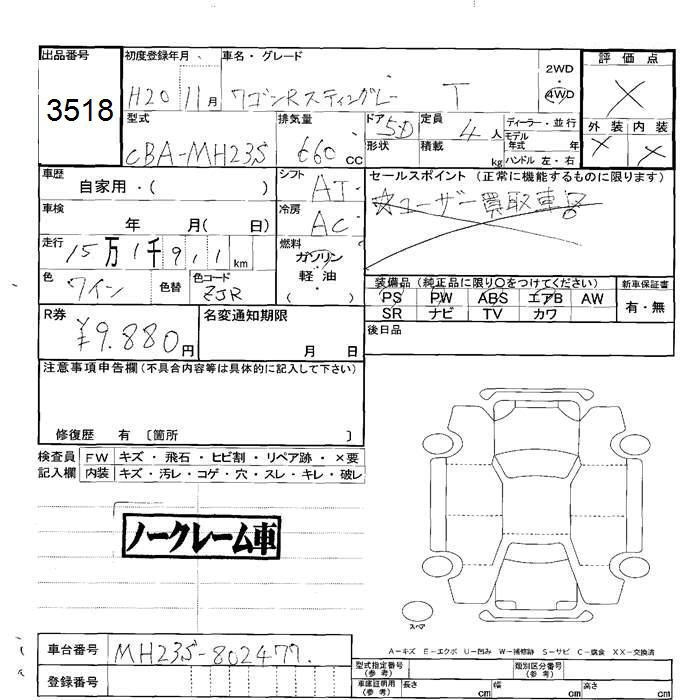 出品番号
3518
初度登録年月
H20 11月
車名・グレード
ワゴンRスティングレー T
2WD
4WD
評価点
×
外装 内装
× ×
型式
CBA-MH23S
排気量
660 cc
ドア 5D
形状
定員 4人
積載 kg
ディーラー・並行
モデル
年式 年
ハンドル 左・右
車歴
自家用・( )
シフト
AT
セールスポイント (正常に機能するものに限ります)
☆ユーザー買取車
車検
年 月( 日)
冷房
AC
走行
15万1千911km
燃料
ガソリン
軽油
( )
色
ワイン
色替
色コード
ZJR
装備品 (純正品に限り〇をつけてください)
PS PW ABS エアB AW
SR ナビ TV カワ
新車保証書
有・無
R券
¥9.880円
名変通知期限
月 日
後日品
注意事項申告欄 (不具合内容等は具体的に記入して下さい)
修復歴 有 〔箇所 〕
検査員 FW キズ・飛石・ヒビ割・リペア跡・×要
記入欄 内装 キズ・汚レ・コゲ・穴・スレ・キレ・破レ
ノークレーム車
スペア
A-キズ E-エクボ U-凹み W-補修跡 S-サビ C-腐食 XX-交換済
車台番号
MH23S-802477
型式指定番号
(参考)
類別区分番号
(参考)
登録番号
車庫証明用
(参考)
長さ cm 幅 cm 高さ cm